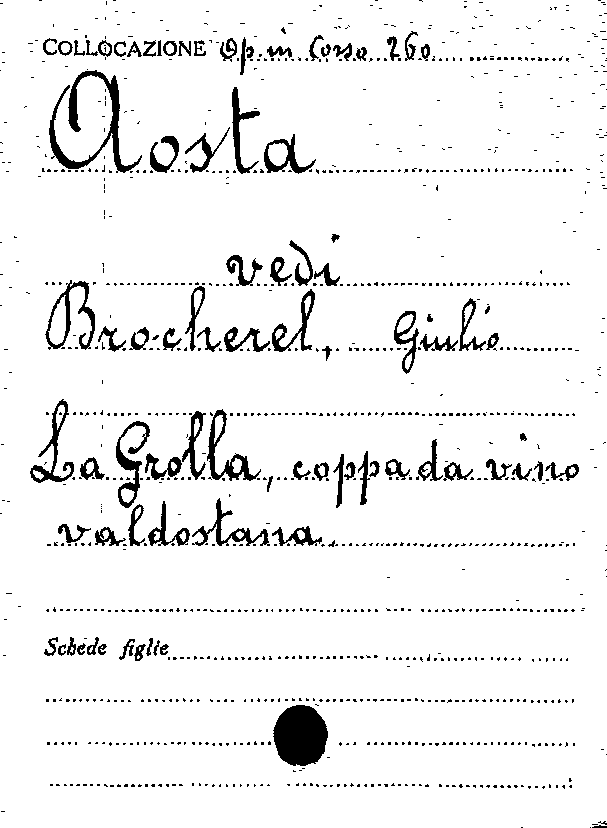 COLLOCAZIONE Op. in Corso 260
Aosta
vedi
Brocherel, Giulio
La Grolla, coppa da vino
valdostana.
Schede figlie